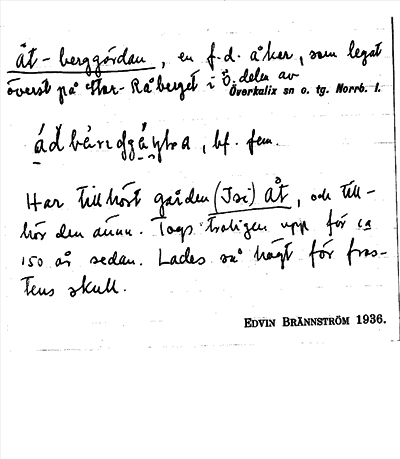 Åt-berggärdan, en f.d. åker, som legat
överst på Har-Råberget i Ö. delen av
Överkalix sn o. tg. Norrb. l.
bf. fem.
Har tillhört gården (Isi) Åt, och till-
hör den ännu. Togs troligen upp för ca
150 år sedan. Lades så högt för fros-
tens skull.
EDVIN BRÄNNSTRÖM 1936.